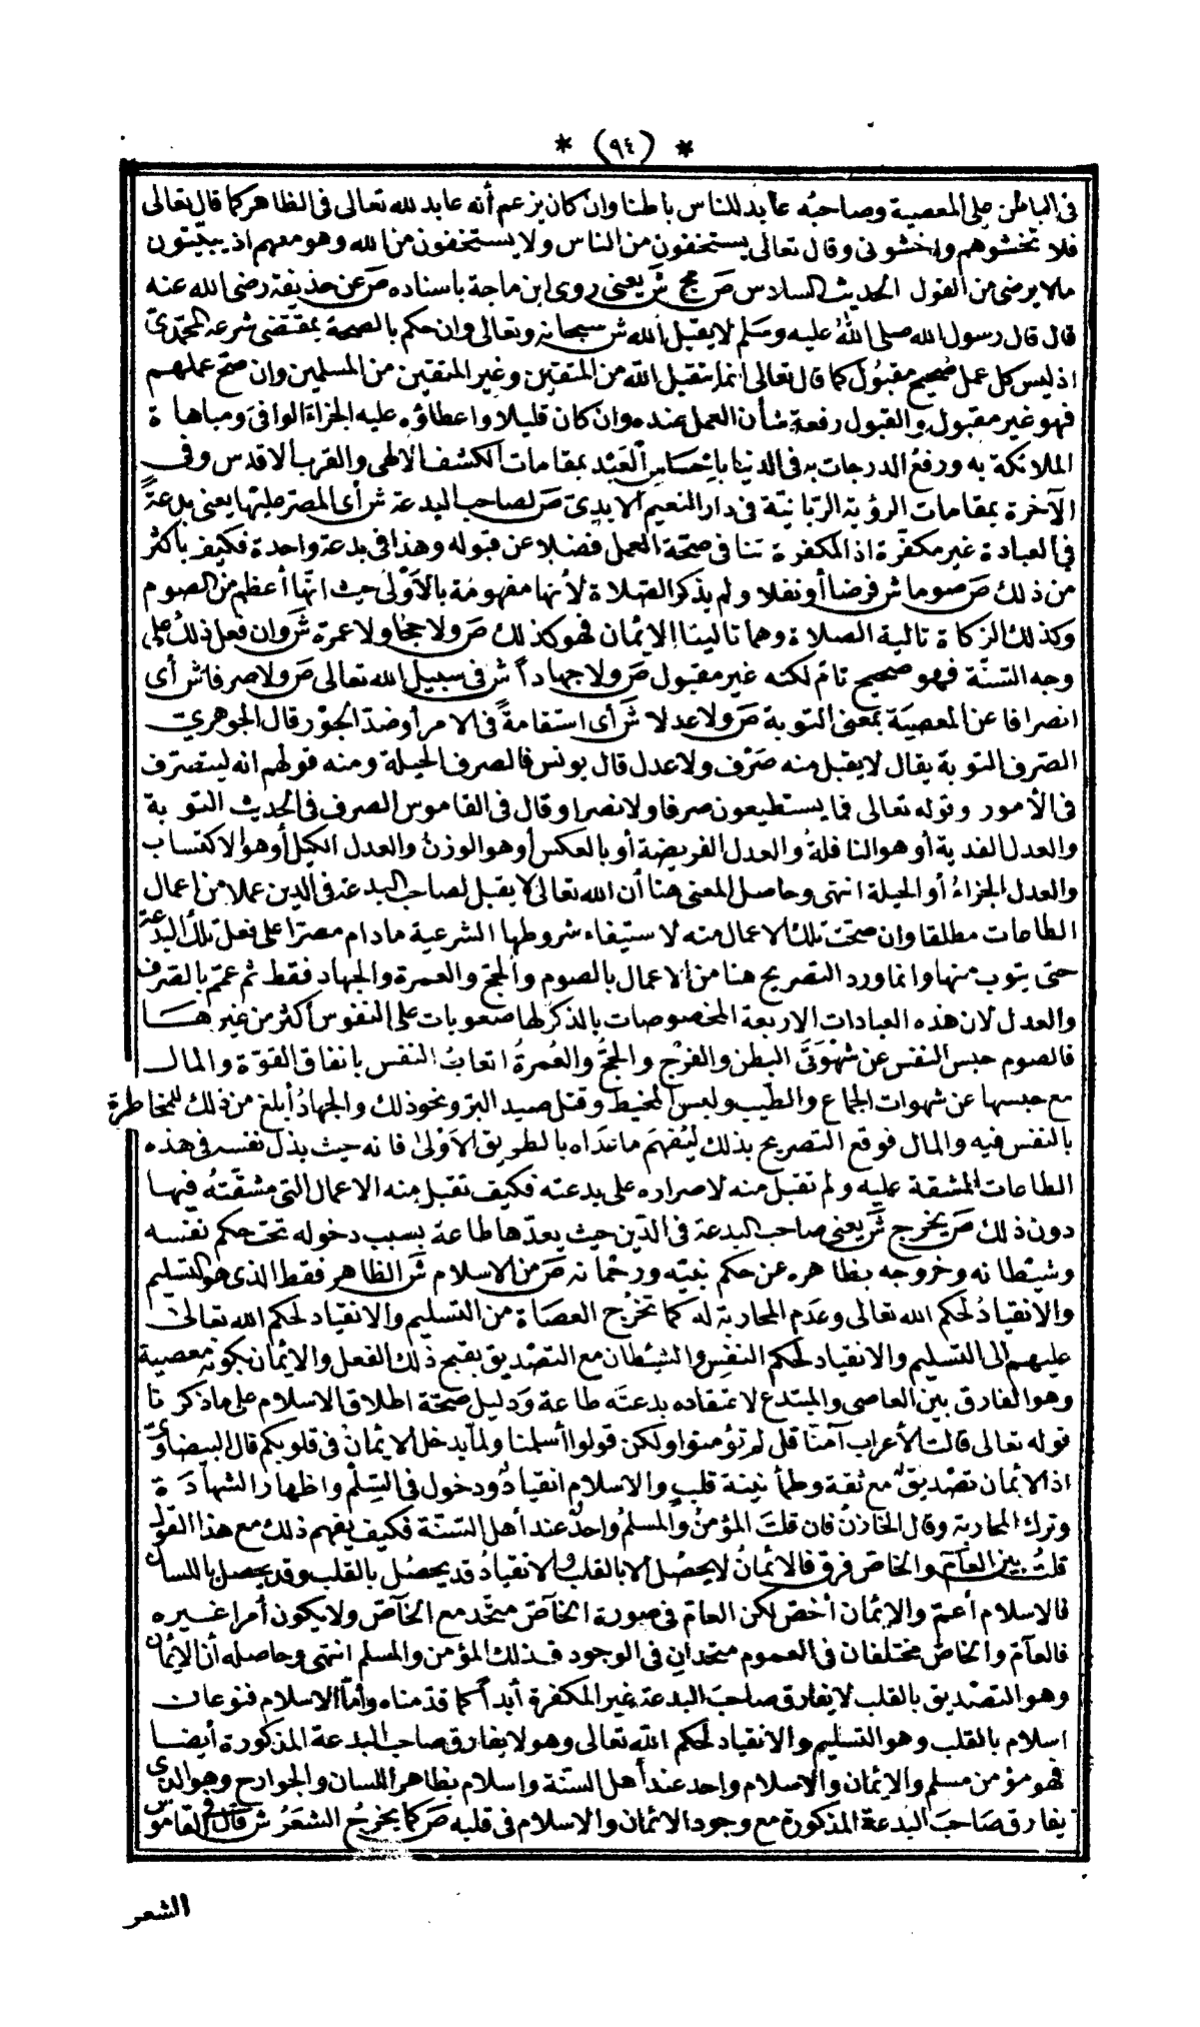 * (٩٤) *
فى الباطن على المعصية وصاحبه عابد للناس باطنا وان كان يزعم أنه عابد لله تعالى فى الظاهر كما قال تعالى
فلا تخشوهم واخشونى وقال تعالى يستخفون من الناس ولا يستخفون من الله وهو معهم اذ يبيّتون
مالا يرضى من القول الحديث السادس ص مج ش يعنى روى ابن ماجة باسناده ص عن حذيفة رضى الله عنه
قال قال رسول الله صلى الله عليه وسلم لا يقبل الله ش سبحانه وتعالى وان حكم بالصحة بمقتضى شرعه المحمّدىّ
اذ ليس كل عمل صحيح مقبول كما قال تعالى انما يتقبل الله من المتقين وغير المتقين من المسلمين وان صحّ عملهم
فهو غير مقبول والقبول رفعة شأن العمل عنده وان كان قليلا واعطاؤه عليه الجزاء الوافى ومباهاة
الملائكة به ورفع الدرجات به فى الدنيا باحساس العبد بمقامات الكشف الالهى والقرب الاقدس وفى
الآخرة بمقامات الرؤية الربّانيّة فى دار النعيم الابدىّ ص لصاحب البدعة ش أى المصرّ عليها يعنى بدعةً
فى العبادة غير مكفّرة اذ المكفرة تنافى صحّة العمل فضلا عن قبوله وهذا فى بدعة واحدة فكيف بأكثر
من ذلك ص صوما ش فرضا أو نفلا ولم يذكر الصّلاة لأنها مفهومة بالأَوْلى حيث انّها أعظم من الصوم
وكذلك الزكاة تالية الصلاة وهما تاليتا الايمان فهو كذلك ص ولا حجّا ولا عمرة ش وان فعل ذلك على
وجه السّنّة فهو صحيح تامّ لكنه غير مقبول ص ولا جهاداً ش فى سبيل الله تعالى ص ولا صرفا ش أى
انصرافا عن المعصية بمعنى التوبة ص ولا عدلا ش أى استقامةً فى الامر أو ضدّ الجَوْر قال الجوهرىّ
الصّرف التوبة يقال لا يقبل منه صَرْف ولا عدل قال يونس فالصرف الحيلة ومنه قولهم انه ليتصرّف
فى الأمور وقوله تعالى فما يستطيعون صرفا ولا نصرا وقال فى القاموس الصرف فى الحديث التوبة
والعدل الفدية أو هو النافلةُ والعدل الفريضة أو بالعكس أو هو الوزنُ والعدل الكيل أو هو الاكتساب
والعدل الجزاءُ أو الحيلة انتهى وحاصل المعنى هنا أن الله تعالى لا يقبل لصاحب البدعة فى الدين عملا من اعمال
الطاعات مطلقا وان صحّت تلك الاعمال منه لاستيفاء شروطها الشرعية مادام مصرّا على فعل تلك البدعة
حتى يتوب منها وانما ورد التصريح هنا من الاعمال بالصوم والحجّ والعمرة والجهاد فقط ثم عمّم بالصّرف
والعدل لان هذه العبادات الاربعة المخصوصات بالذكر لها صعوبات على النفوس أكثر من غيرها
فالصوم حبس النفس عن شهْوَتَى البطن والفَرْج والحجّ والعُمرةُ اتعابُ النفس بانفاق القوّة والمال
مع حبسها عن شهوات الجماع والطّيب ولبس المخيط وقتل صيد البرّ ونحو ذلك والجهادُ أبلغ من ذلك للمخاطرة
بالنفس فيه والمال فوقع التصريح بذلك ليُفهَم ما عَدَاه بالطريق الأَوْلى فانه حيث بذل نفسه فى هذه
الطاعات المشقة عليه ولم تقبل منه لاصراره على بدعته فكيف تقبل منه الاعمال التى مشقّتُه فيها
دون ذلك ص يخرج ش يعنى صاحب البدعة فى الدّين حيث يعدّها طاعة بسبب دخوله تحت حكم نفسه
وشيطانه وخروجه بظاهره عن حكم نبيّه ورحمانه ص من الاسلام ش الظاهر فقط الذى هو التسليم
والانقيادُ لحكم الله تعالى وعَدَم المحاربة له كما تخْرُج العصاة من التسليم والانقياد لحكم الله تعالى
عليهم الى التسليم والانقياد لحكم النفس والشيطان مع التصديق بقبح ذلك الفعل والايمان بكونه معصية
وهو الفارق بين العاصى والمبتدع لاعتقاده بدعته طاعة ودليل صحّة اطلاق الاسلام على ماذكرنا
قوله تعالى قالت الأعراب آمنّا قل لم تؤمنوا ولكن قولوا أسلمنا ولمّا يدخل الايمانُ فى قلوبكم قال البيضاوىّ
اذ الايمان تصديقٌ مع ثقة وطمأنينة قلب والاسلام انقيادٌ ودخول فى السِّلم واظهار الشهادة
وترك المحاربة وقال الخازنُ فان قلتَ المؤمنُ والمسلمُ واحدٌ عند أهل السّنّة فكيف يفهم ذلك مع هذا القول
قلتُ بين العامّ والخاصّ فرق فالايمانُ لا يحصُل الا بالقلب والانقيادُ قد يحصُل بالقلب وقد يحصل باللسان
فالاسلام أعمّ والايمان أخصّ لكن العامّ فى صورة الخاصّ متّحد مع الخاصّ ولا يكون أمرا غيره
فالعامّ والخاصّ مختلفان فى العموم متحدان فى الوجود فذلك المؤمن والمسلم انتهى وحاصله أن الايمان
وهو التصْديق بالقلب لا يفارق صاحب البدعة غير المكفرة أبداً كما قدّمناه وأمّا الاسلام فنوعان
اسلام بالقلب وهو التسليم والانقياد لحكم الله تعالى وهو لا يفارق صاحب البدعة المذكورة أيضا
فهو مؤمن مسلم والايمان والاسلام واحد عند أهل السّنة واسلام بظاهر اللسان والجوارح وهو الذى
يفارق صَاحبَ البدعة المذكورة مع وجود الايمان والاسلام فى قلبه ص كما يخرج الشعَرُ ش قال فى القاموس
الشعر